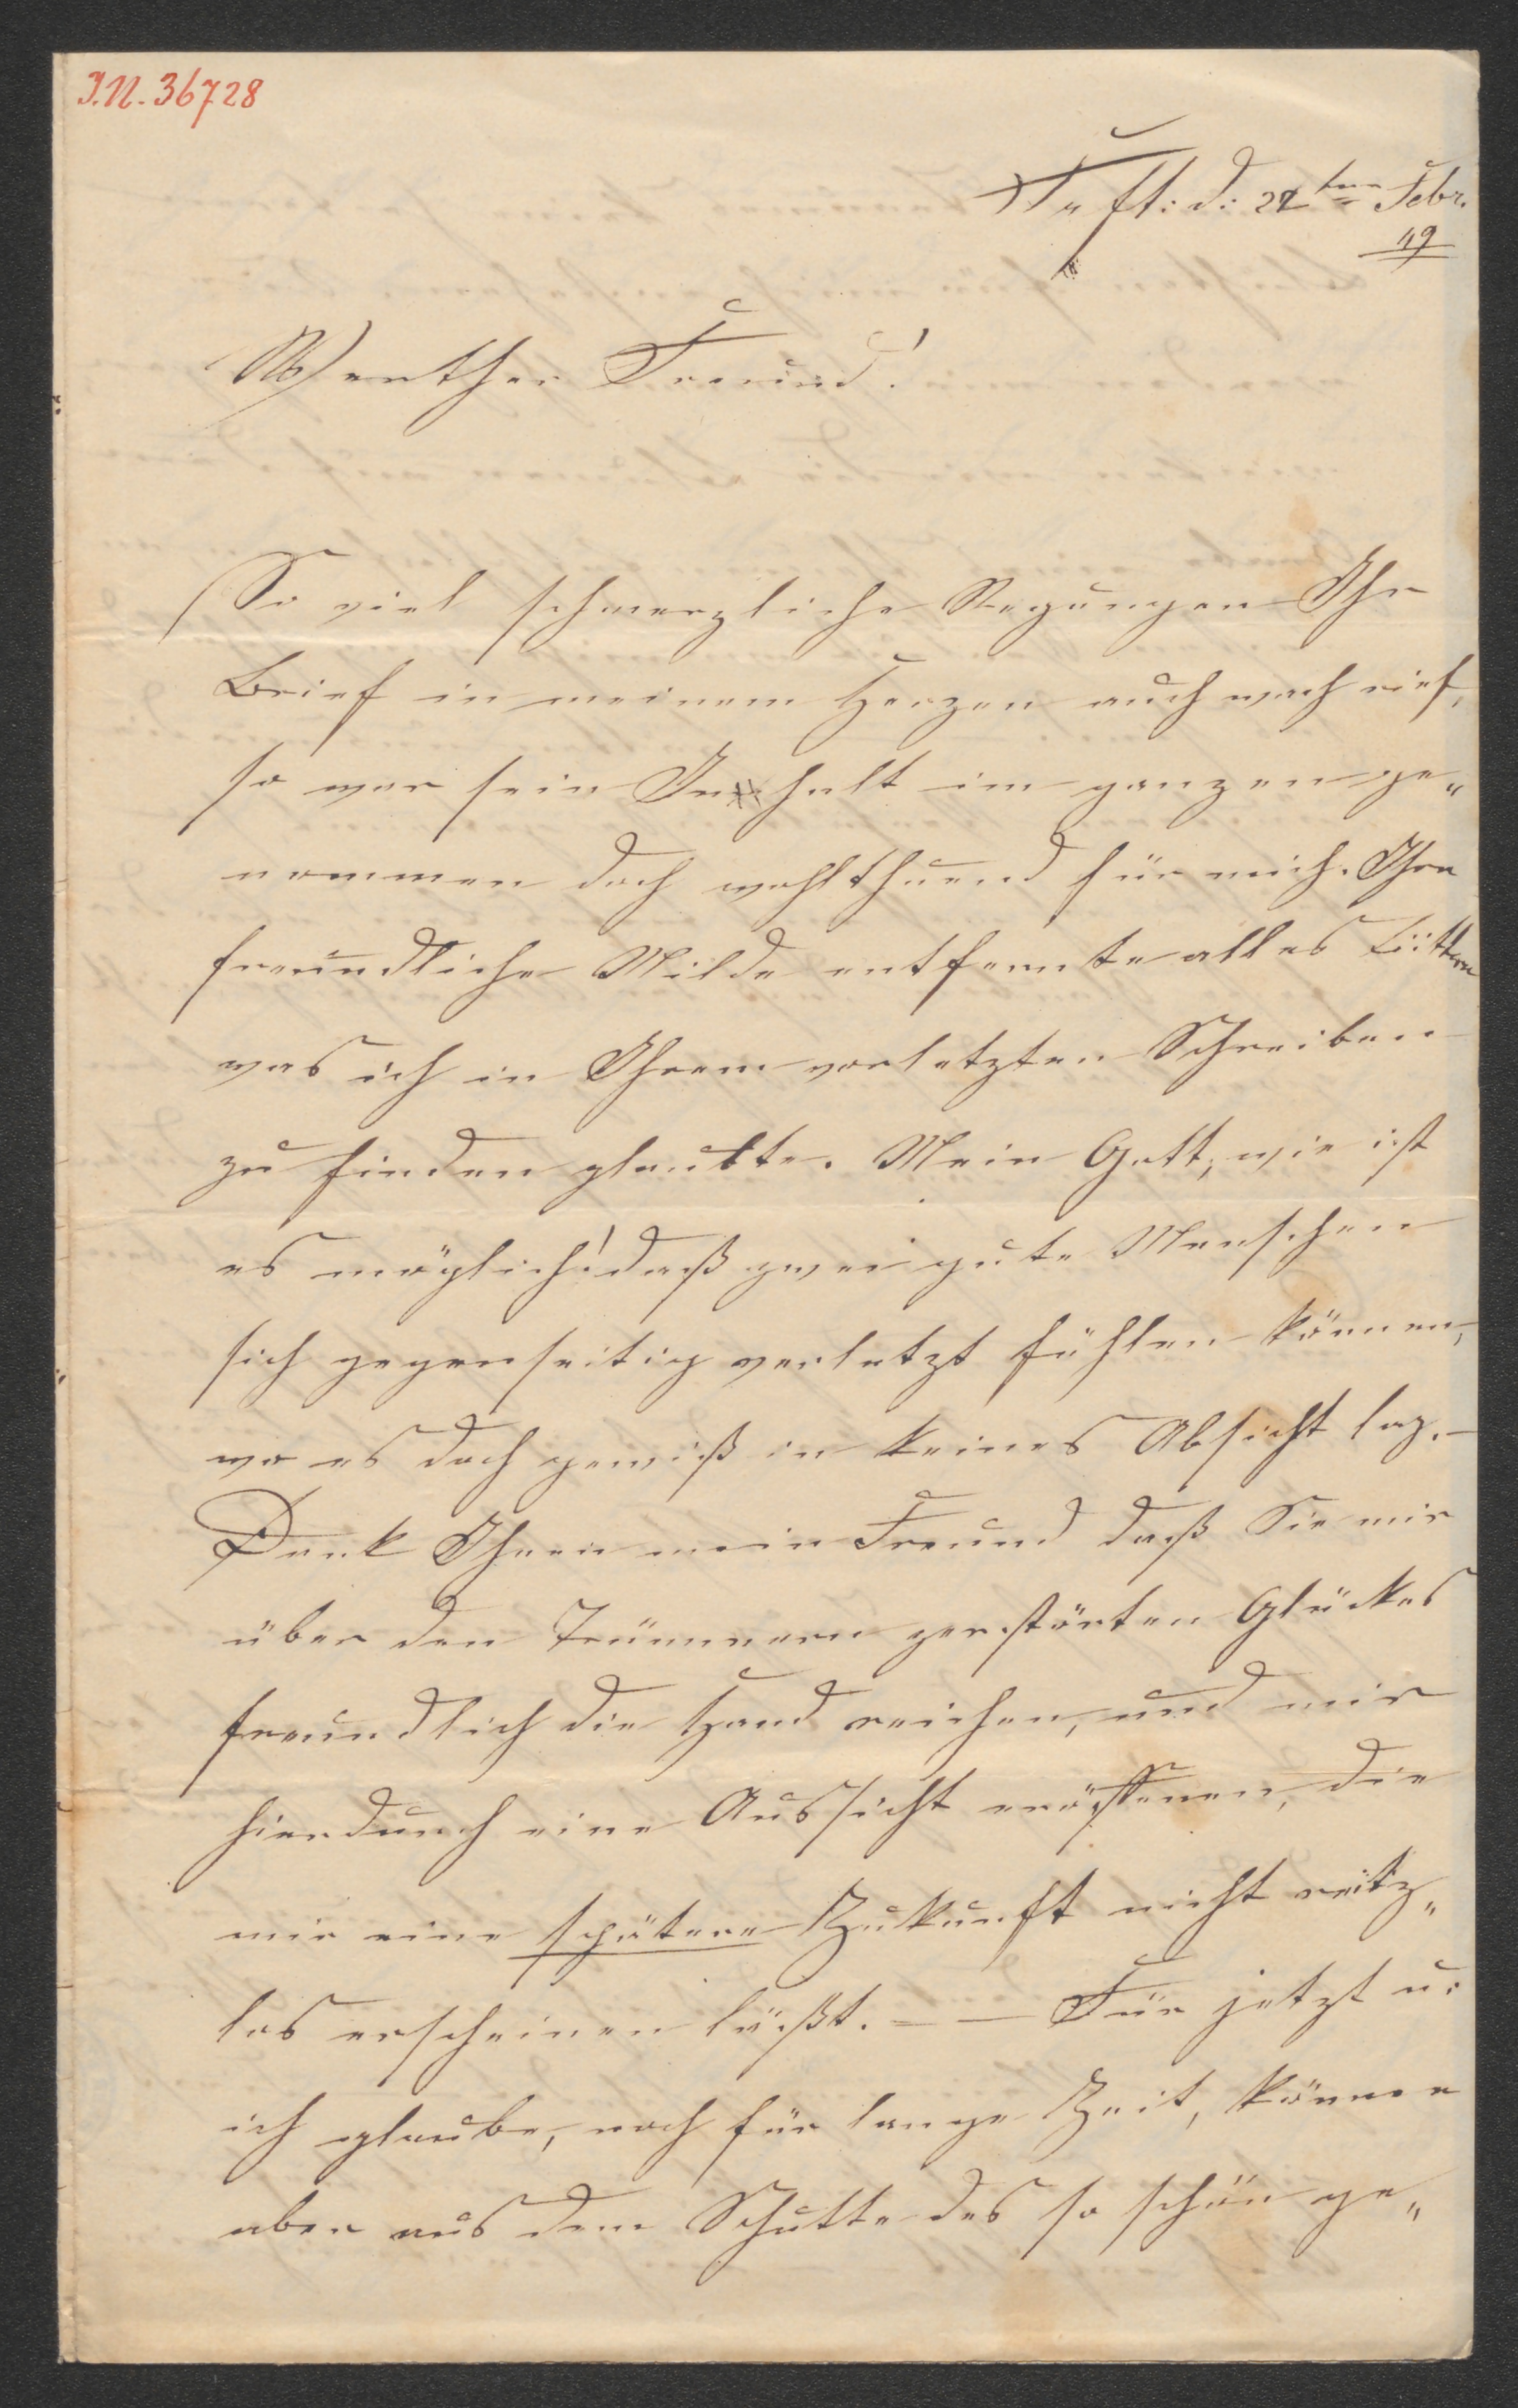 I.N. 36728
Fft: d: 22ten Febr.
49
Werther Freund!
So viel schmerzliche Regungen Ihr
Brief in meinem Herzen auch wach rief,
so war sein Inhalt im ganzen ge„
nommen doch wohlthuend für mich. Ihre
freundliche Milde entfernte alles Bittere
was ich in Ihrem vorletzten Schreiben
zu finden glaubte. Mein Gott, wie ist
es möglich! daß zwei gute Menschen
sich gegenseitig verletzt fühlen können,
wo es doch gewiß in keines Absicht lag. –
Dank Ihnen mein Freund daß Sie mir
über den Trümmern zerstörten Glückes
freundlich die Hand reichen, und mir
hierdurch eine Aussicht eröffnen, die
mir eine spätere Zukunft nicht reitz„
los erscheinen läßt. – – Für jetzt u:
ich glaube, noch für lange Zeit, können
aber aus dem Schutte des so schön ge„